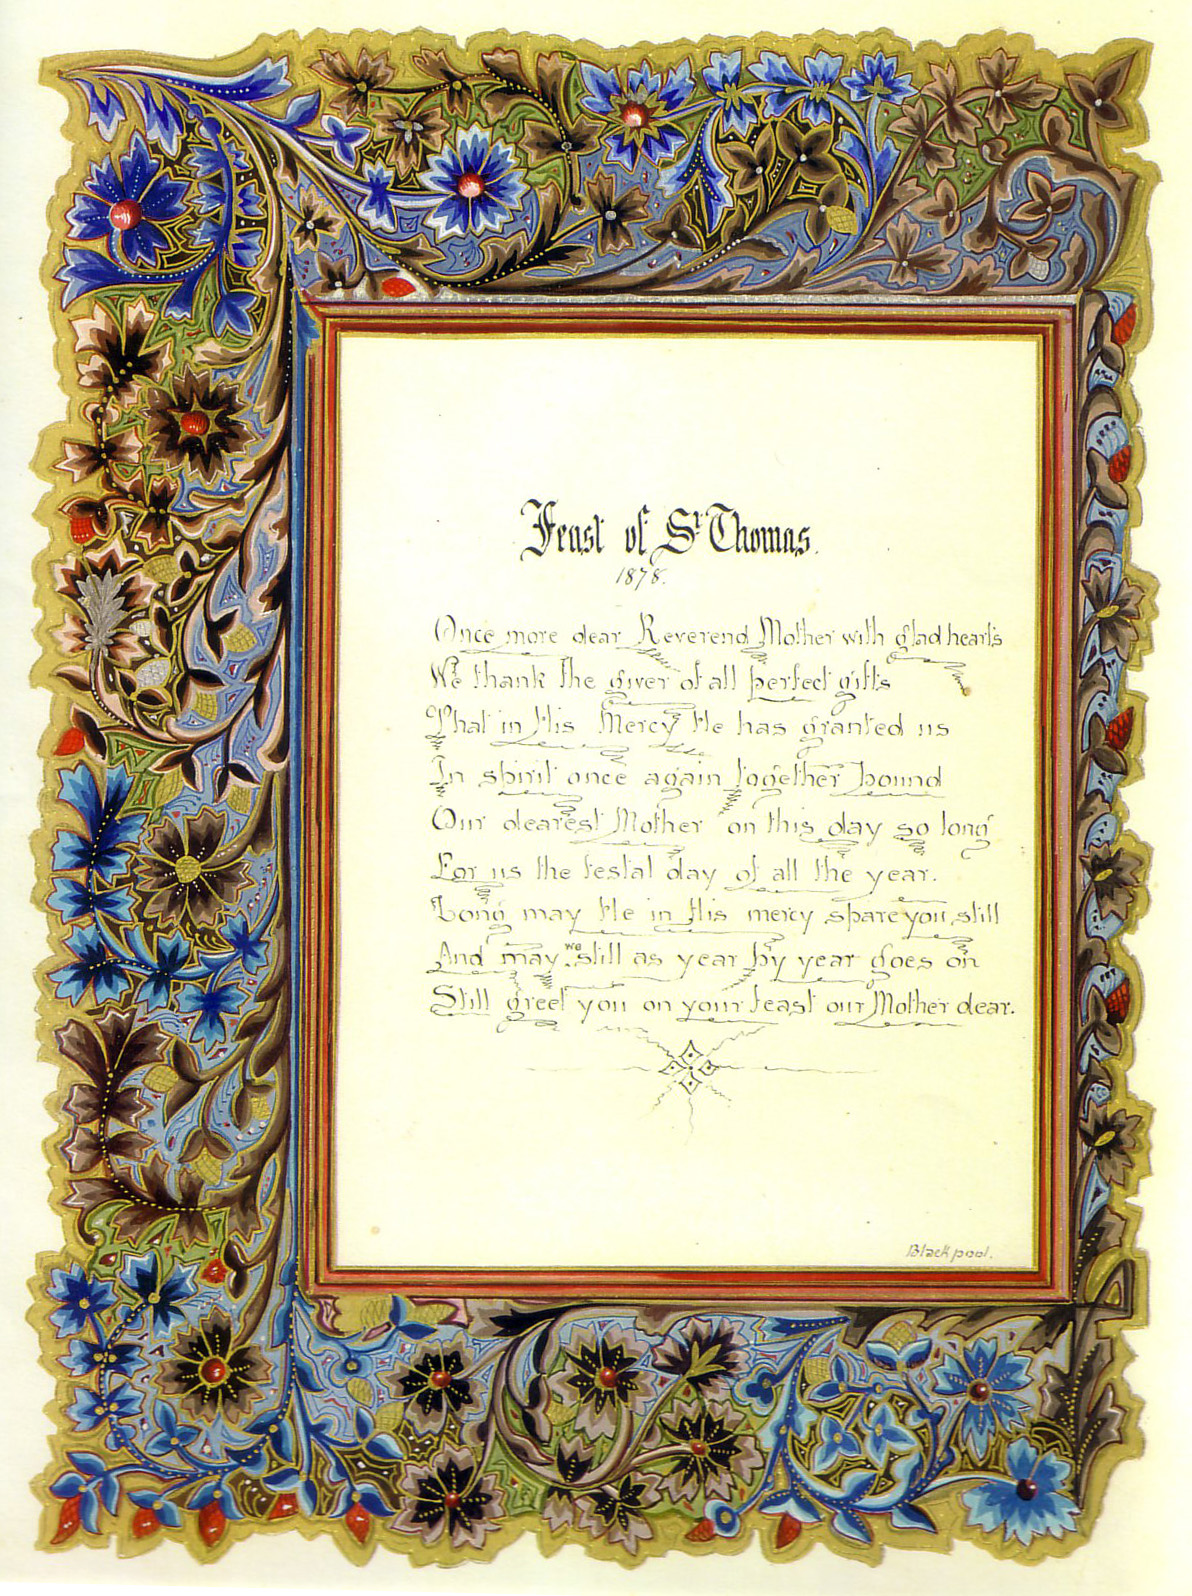 Feast of St Thomas.
1878.
Once more dear Reverend Mother with glad hearts
We thank the giver of all perfect gifts
That in His Mercy He has granted us
In spirit once again together bound
Our dearest Mother on this day so long
For us the festal day of all the year.
Long may He in His mercy spare you still
And may we still as year by year goes on
Still greet you on your feast our Mother dear.
Blackpool.